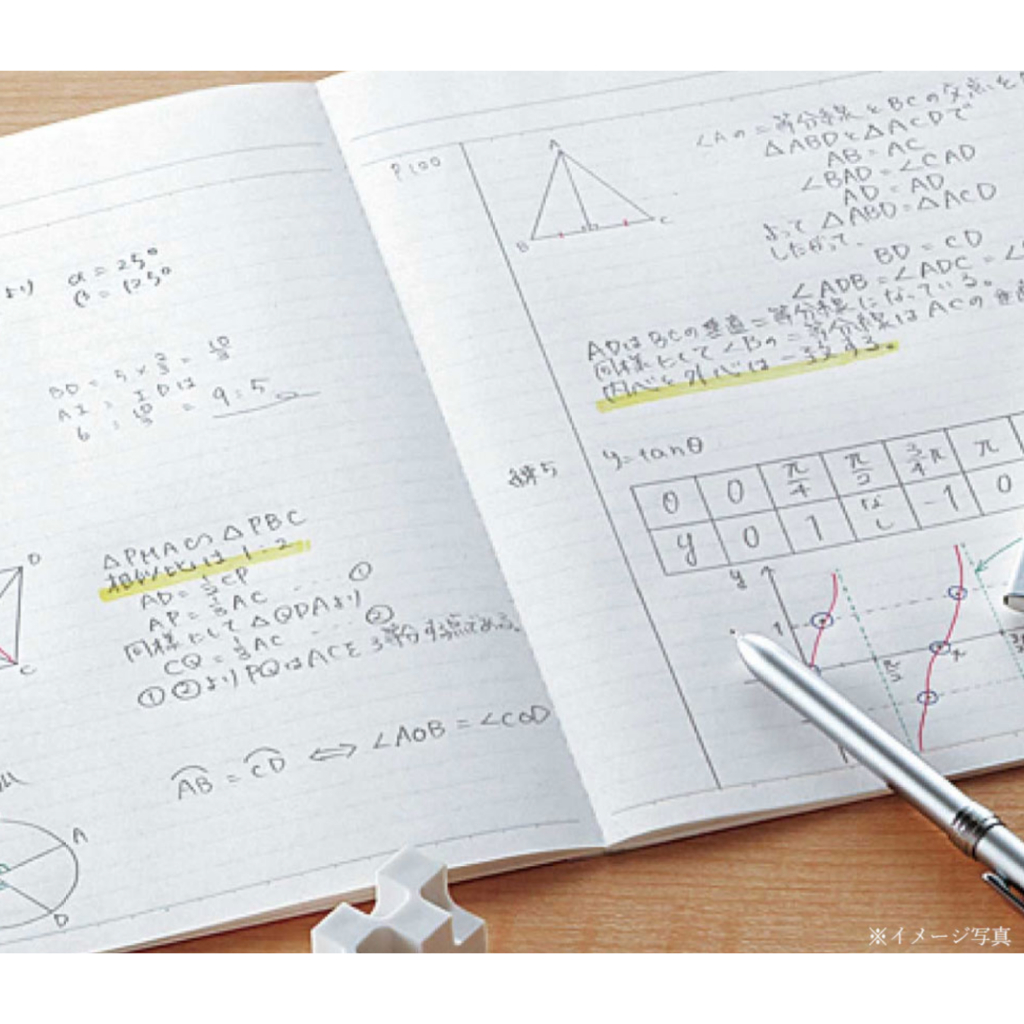 より α = 25°
β = 125°
BD = 5 × 2/3 = 10/3
AI : IDは
6 : 10/3 = 9:5
△PMA∽△PBC
相似比は1:2
AD = 1/2 CP
AP = 1/3 AC ……①
同様にして△QDAより
CQ = 1/3 AC ……②
①②よりPQはACを3等分する点である。
AB = CD ⇔ ∠AOB = ∠COD
D
C
A
D
P100
A
B
D
C
∠Aの二等分線とBCの交点を
△ABDと△ACDで
AB = AC
∠BAD = ∠CAD
AD = AD
よって △ABD = △ACD
したがって、
BD = CD
∠ADB = ∠ADC = ∠
ADはBCの垂直二等分線になっている。
同様にして∠Bの二等分線はACの垂直
内心と外心は一致する。
練5
y=tanθ
θ 0 π/4 π/2 3/4π π
y 0 1 なし -1 0
y
1
π/2
π
※イメージ写真